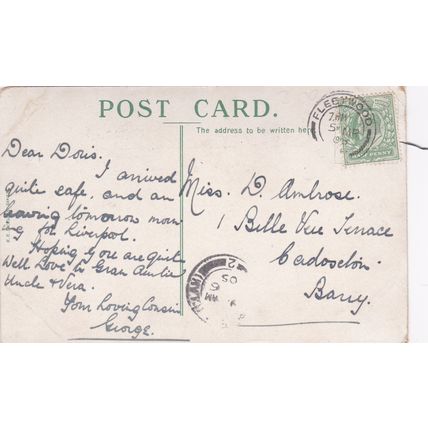 POST CARD.
The address to be written her
FLEETWOOD
HALFPENNY
Dear Doris.
I arrived
quite safe and am
leaving tomorrow morn
g for Liverpool.
Hoping you are quite
Well Love to Gran Auntie
Uncle & Vera.
Your loving Cousin
George.
Miss. D. Ambrose.
1 Belle Vue Terrace
Cadoxton
Barry.
05